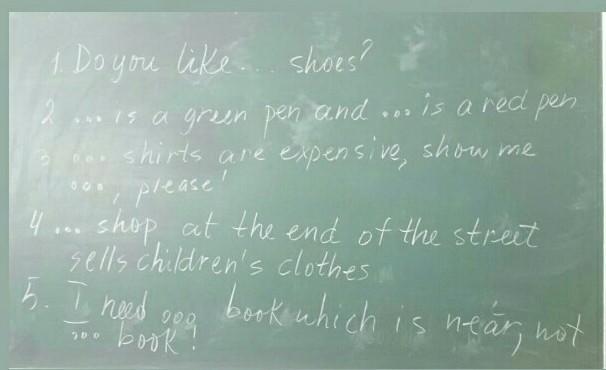 1. Do you like ... shoes?
2 ... is a green pen and ... is a red pen
3 ... shirts are expensive, show me
..., please!
4 ... shop at the end of the street
sells children's clothes
5. I need ... book which is near, not
... book!